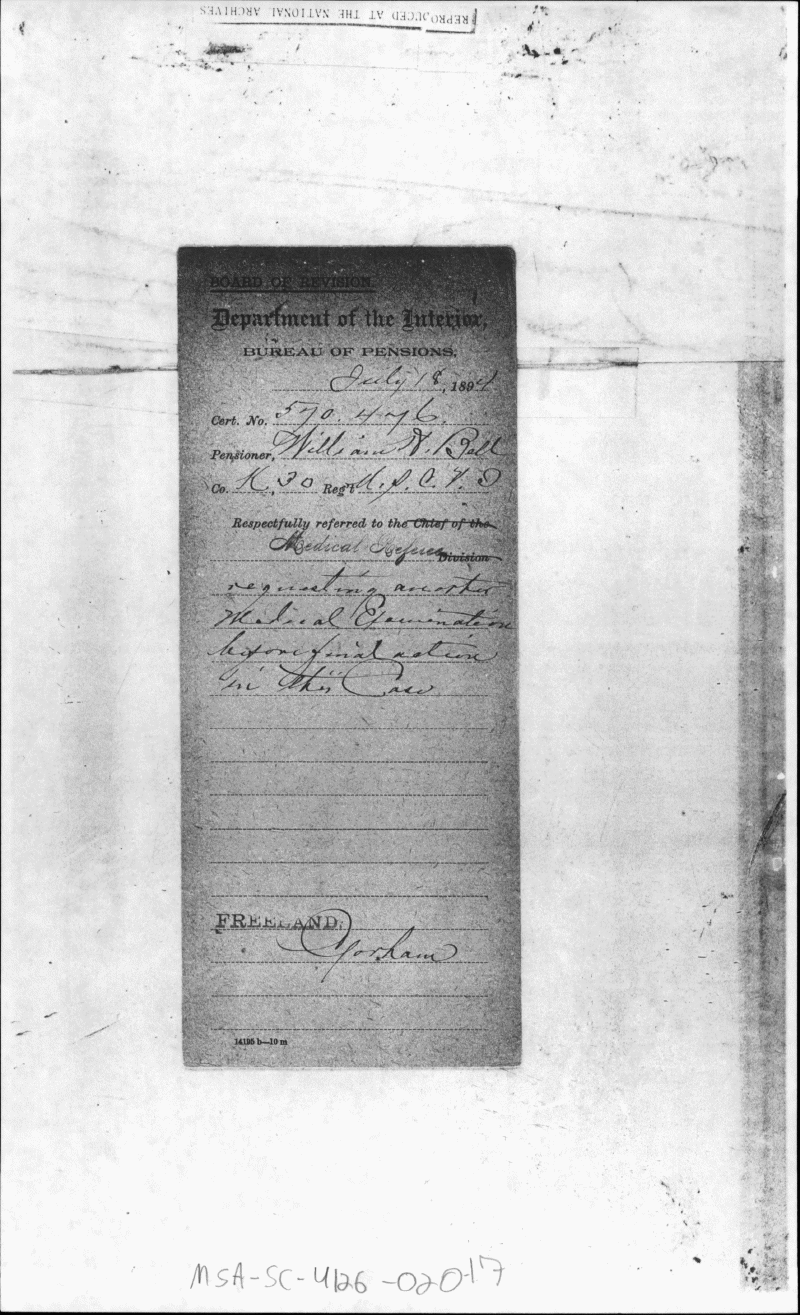 REPRODUCED AT THE NATIONAL ARCHIVES
BOARD OF REVISION.
Department of the Interior,
BUREAU OF PENSIONS,
July 18, 1894
Cert. No. 570.476.
Pensioner, William H. Bell
Co. K, 30 Reg't U.S.C.V.I
Respectfully referred to the Chief of the
Medical Referee Division
requesting another
Medical Examination
before final action
in this Case
FREELAND,
Gorham
14195 b—10 m
MSA-SC-4126-02017